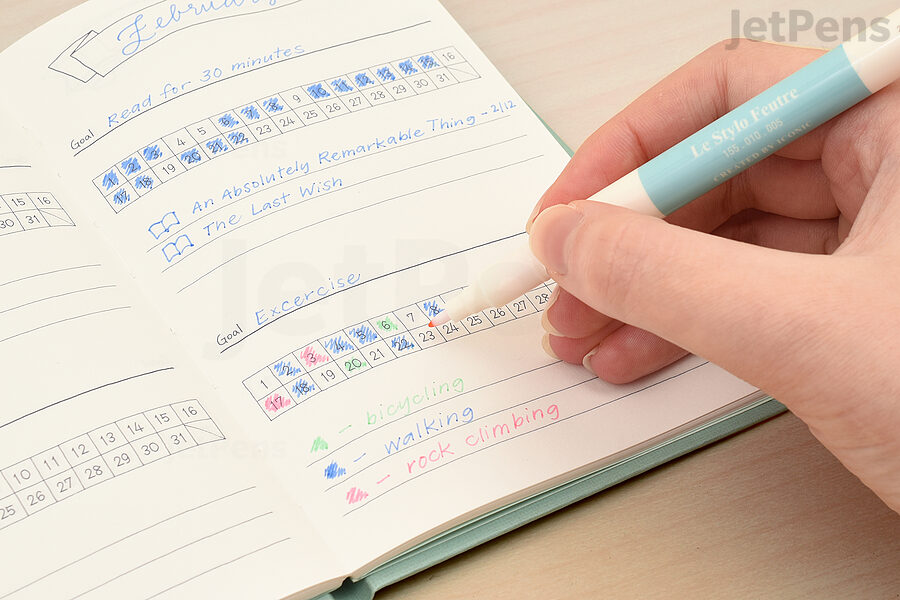 JetPens
February
Goal Read for 30 minutes
1 2 3 4 5 6 7 8 9 10 11 12 13 14 15 16
17 18 19 20 21 22 23 24 25 26 27 28 29 30 31
An Absolutely Remarkable Thing - 2/12
The Last Wish
Goal Excercise
1 2 3 4 5 6 7 8
17 18 19 20 21 22 23 24 25 26 27 28
- bicycling
- walking
- rock climbing
16
30 31
10 11 12 13 14 15 16
25 26 27 28 29 30 31
Le Stylo Feutre
155 010 005
CREATED BY ICONIC
JetPens